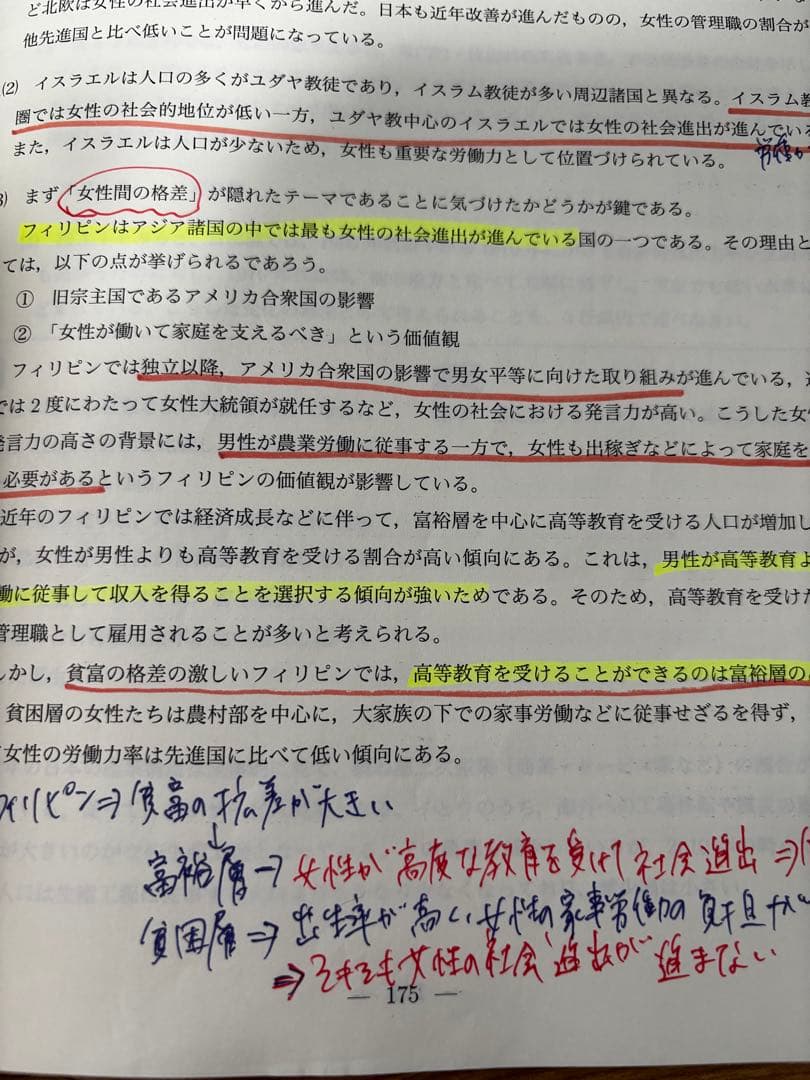 ど北欧は女性の社会進出が早くから進んだ。日本も近年改善が進んだものの，女性の管理職の割合が
他先進国と比べ低いことが問題になっている。
(2) イスラエルは人口の多くがユダヤ教徒であり，イスラム教徒が多い周辺諸国と異なる。イスラム教
圏では女性の社会的地位が低い一方，ユダヤ教中心のイスラエルでは女性の社会進出が進んでいる
また，イスラエルは人口が少ないため，女性も重要な労働力として位置づけられている。
3) まず「女性間の格差」が隠れたテーマであることに気づけたかどうかが鍵である。
フィリピンはアジア諸国の中では最も女性の社会進出が進んでいる国の一つである。その理由と
ては，以下の点が挙げられるであろう。
① 旧宗主国であるアメリカ合衆国の影響
② 「女性が働いて家庭を支えるべき」という価値観
フィリピンでは独立以降，アメリカ合衆国の影響で男女平等に向けた取り組みが進んでいる，
では２度にわたって女性大統領が就任するなど，女性の社会における発言力が高い。こうした女
発言力の高さの背景には，男性が農業労働に従事する一方で，女性も出稼ぎなどによって家庭を
必要があるというフィリピンの価値観が影響している。
近年のフィリピンでは経済成長などに伴って，富裕層を中心に高等教育を受ける人口が増加し
が，女性が男性よりも高等教育を受ける割合が高い傾向にある。これは，男性が高等教育よ
働に従事して収入を得ることを選択する傾向が強いためである。そのため，高等教育を受けた
管理職として雇用されることが多いと考えられる。
しかし，貧富の格差の激しいフィリピンでは，高等教育を受けることができるのは富裕層の
貧困層の女性たちは農村部を中心に，大家族の下での家事労働などに従事せざるを得ず，
女性の労働力率は先進国に比べて低い傾向にある。
フィリピン⇒貧富の格差が大きい
↓
富裕層→女性が高度な教育を受けて社会進出⇒
貧困層⇒出生率が高く女性の家事労働の負担が
⇒そもそも女性の社会進出が進まない
— 175 —